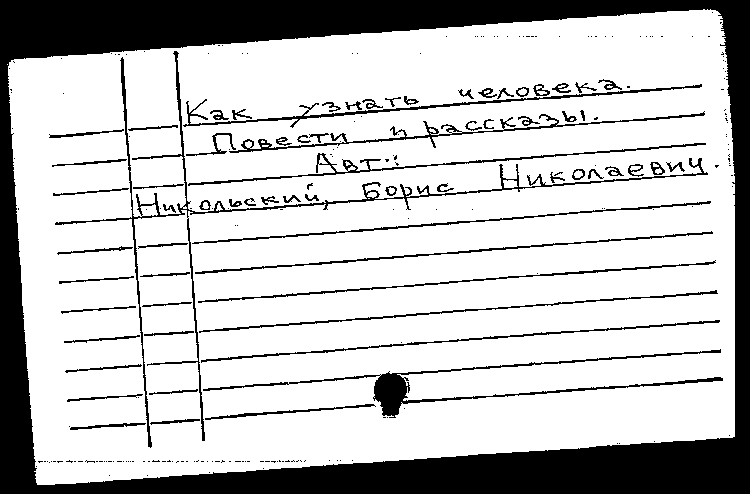 Как узнать человека.
Повести и рассказы.
Авт.:
Никольский, Борис Николаевич.